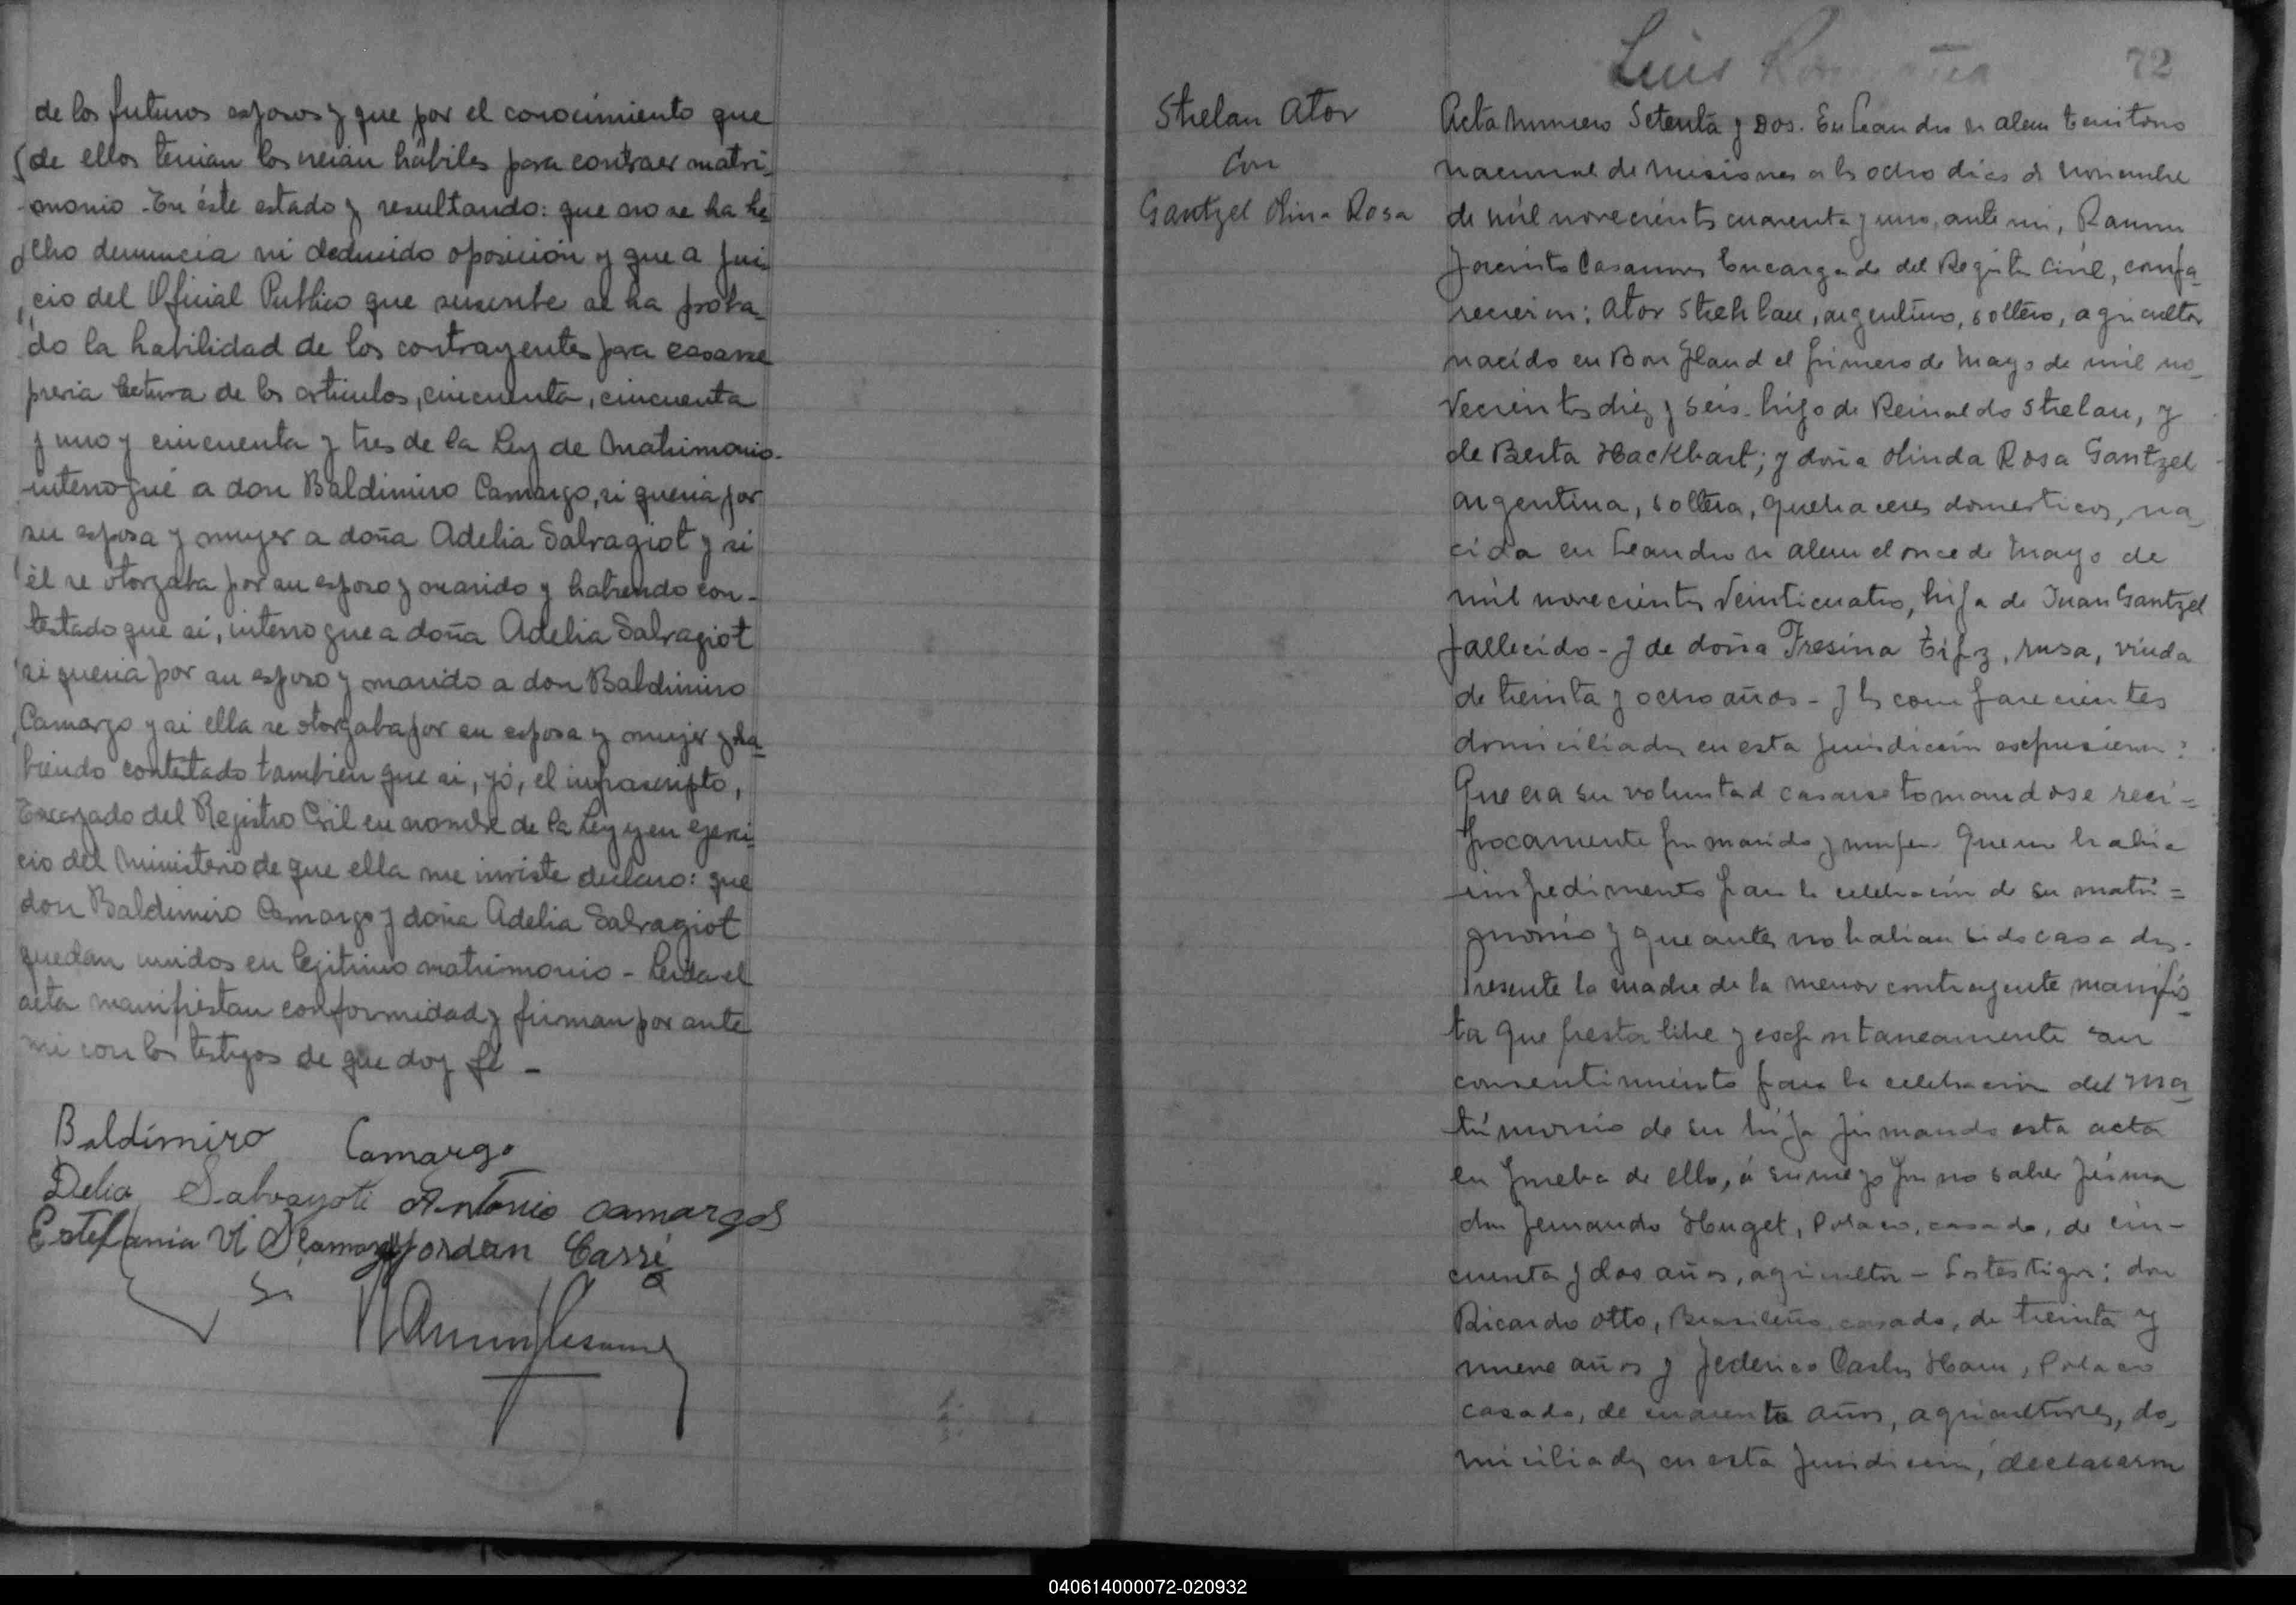 de los futuros esposos y que por el conocimiento que
de ellos tenian los creian hábiles para contraer matri-
monio - En éste estado y resultando: que no se ha he
cho denuncia ni deducido oposición y que a jui
cio del Oficial Publico que suscribe se ha proba-
do la habilidad de los contrayentes para casarse
previa lectura de los articulos, cincuenta, cincuenta
y uno y cincuenta y tres de la Ley de Matrimonio-
interrogué a don Baldimiro Camargo, si queria por
su esposa y mujer a doña Adelia Salvagiot y si
él se otorgaba por su esposo y marido y habiendo con-
testado que si, interrogue a doña Adelia Salvagiot
si queria por su esposo y marido a don Baldimiro
Camargo y si ella se otorgaba por su esposa y mujer y ha-
biendo contestado tambien que si, yó, el infrascripto,
Encargado del Registro Civil en nombre de la Ley y en ejerci
cio del Ministerio de que ella me inviste declaro: que
don Baldimiro Camargo y doña Adelia Salvagiot
quedan unidos en legitimo matrimonio - Leida el
acta manifiestan conformidad y firman por ante
mi con los testigos de que doy fé -
Baldimiro Camargo
Delia Salvagoti Antonio Camargos
Estefania
Jordan Carré
72
Luis Romaña
Strelau Ator
Con
Gantzel Olina Rosa
Acta numero Setenta y Dos. En Leandro n alem territorio
nacional de misiones a los ocho dias de noviembre
de mil novecientos cuarenta y uno, ante mi, Ramon
Jacinto Casanova Encargado del Registro Civil, compa-
recieron: Ator Strehlau, argentino, soltero, agricultor
nacido en Bon pland el primero de Mayo de mil no-
vecientos diez y seis - hijo de Reinaldo Strelau, y
de Berta Hackbart; y doña Olinda Rosa Gantzel
argentina, soltera, quehaceres domesticos, na-
cida en Leandro n alem el once de Mayo de
mil novecientos veinticuatro, hija de Juan Gantzel
fallecido - y de doña Tresina Tifz, rusa, viuda
de treinta y ocho años - y los comparecientes
domiciliados en esta jurisdiccion expusieron:
Que era su voluntad casarse tomandose reci=
procamente por marido y mujer Que no habia
impedimento para la celebración de su matri=
monio y que antes no habian sido casados.
Presente la madre de la menor contrayente manifis
ta que presta libre y espontaneamente su
consentimiento para la celebracion del ma
trimonio de su hija firmando esta acta
en prueba de ello, á su ruego por no saber firmar
don Fernando Huget, Polaco, casado, de cin-
cuenta y dos años, agricultor - Los testigos: don
Ricardo Otto, Brasileño, casado, de treinta y
nueve años y Federico Carlos Ham, Polaco
casado, de cuarenta años, agricultores, do-
miciliados en esta jurisdiccion, declararon
040614000072-020932